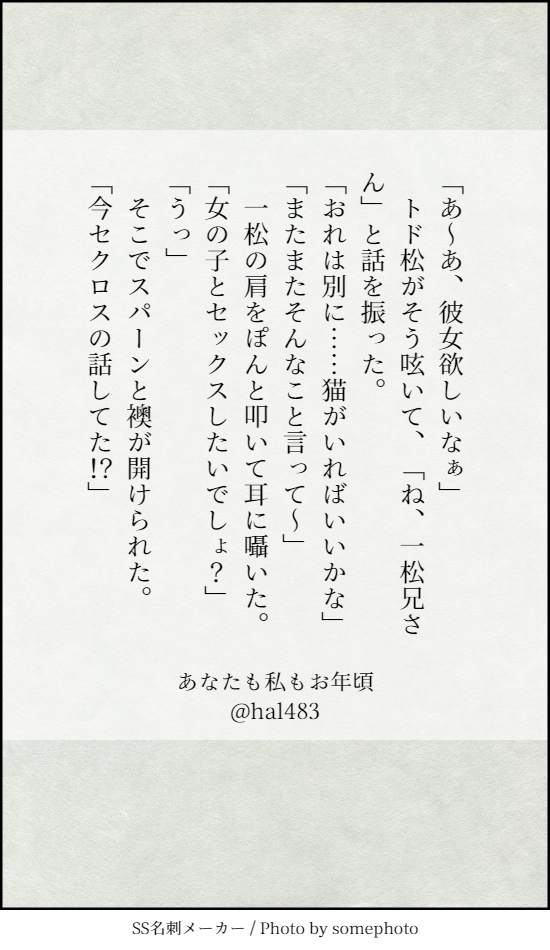 「あ〜あ、彼女欲しいなぁ」
　トド松がそう呟いて、「ね、一松兄さ
ん」と話を振った。
「おれは別に……猫がいればいいかな」
「またまたそんなこと言って〜」
　一松の肩をぽんと叩いて耳に囁いた。
「女の子とセックスしたいでしょ？」
「うっ」
　そこでスパーンと襖が開けられた。
「今セクロスの話してた!?」
あなたも私もお年頃
@hal483
SS名刺メーカー / Photo by somephoto